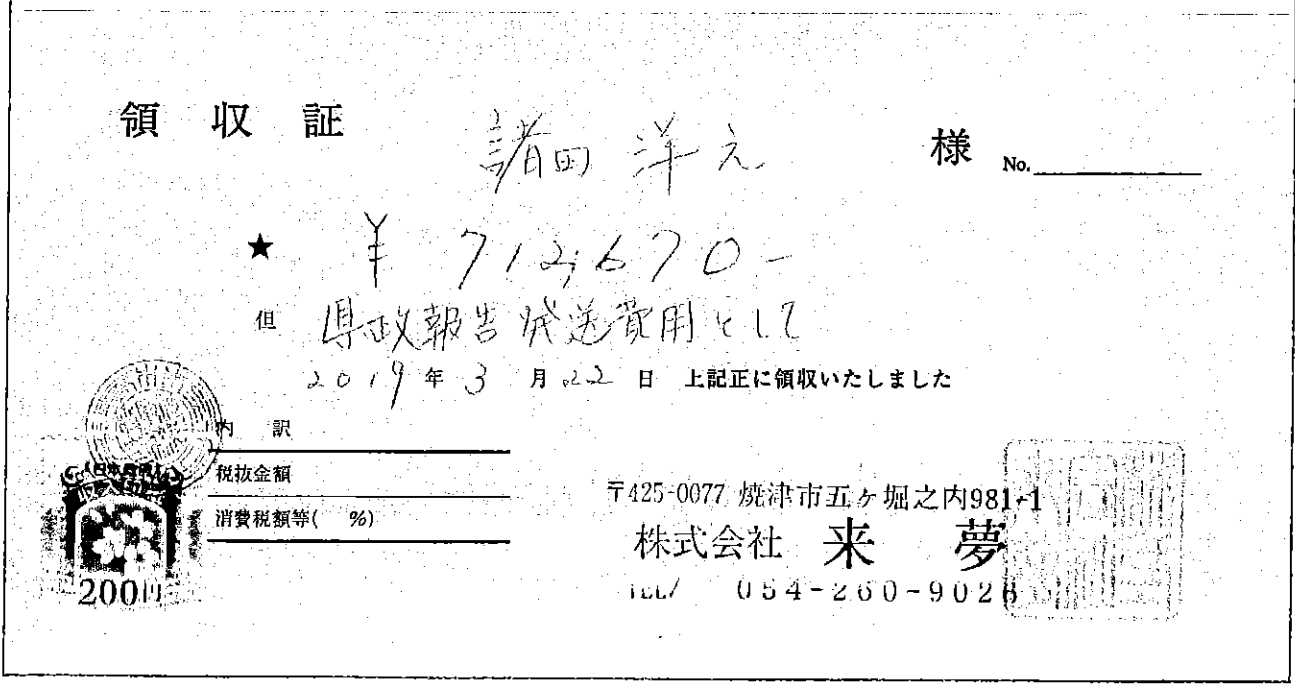 領 収 証 諸田 洋之 様 No.
★ ¥712,670-
但 県政報告発送費用として
2019年3月22日 上記正に領収いたしました
内 訳
税抜金額
消費税額等( %)
200円
〒425-0077 焼津市五ケ堀之内981-1
株式会社 来 夢
TEL/ 054-260-9028